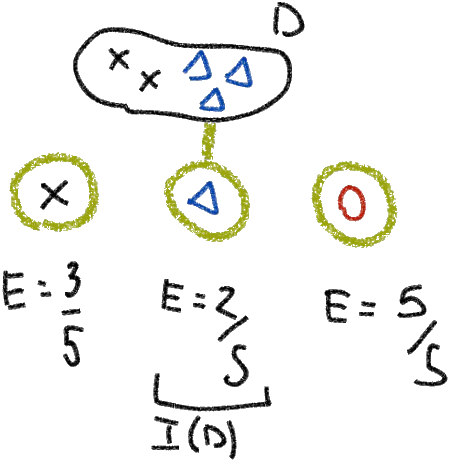 D
E = 3/5
E = 2/5
E = 5/5
I(D)